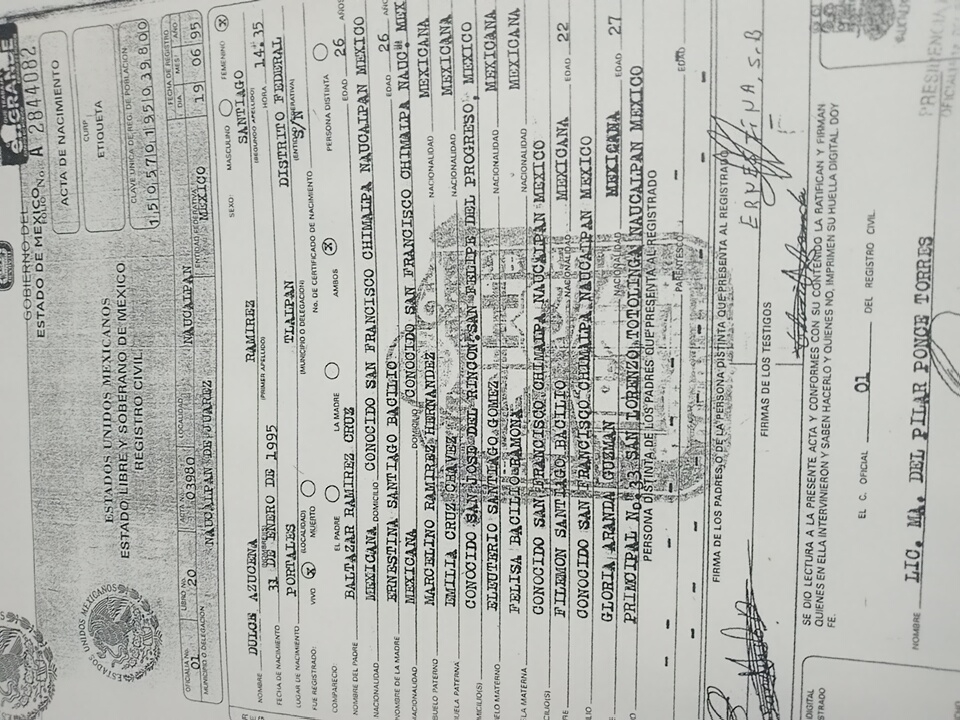 GOBIERNO DEL
ESTADO DE MEXICO
FOLIO No. A 2844082
ACTA DE NACIMIENTO
CURP
ETIQUETA
CLAVE UNICA DE REG. DE POBLACION
150570195039800
ESTADOS UNIDOS MEXICANOS
ESTADO LIBRE Y SOBERANO DE MEXICO
REGISTRO CIVIL
OFICIALIA No. LIBRO No. ACTA No. LOCALIDAD FECHA DE REGISTRO
DIA MES AÑO
01 20 03980 NAUCALPAN 19 06 95
MUNICIPIO O DELEGACION NAUCALPAN DE JUAREZ ENTIDAD FEDERATIVA MEXICO
SEXO: MASCULINO FEMENINO X
NOMBRE DULCE AZUCENA RAMIREZ SANTIAGO
(NOMBRES) (PRIMER APELLIDO) (SEGUNDO APELLIDO)
FECHA DE NACIMIENTO 31 DE ENERO DE 1995 HORA 14:35
LUGAR DE NACIMIENTO PORTALES TLALPAN DISTRITO FEDERAL
(LOCALIDAD) (MUNICIPIO O DELEGACION) (ENTIDAD FEDERATIVA)
FUE REGISTRADO: VIVO X MUERTO No. DE CERTIFICADO DE NACIMIENTO S/N
COMPARECIO: EL PADRE LA MADRE AMBOS X PERSONA DISTINTA
NOMBRE DEL PADRE BALTAZAR RAMIREZ CRUZ EDAD 26 AÑOS
NACIONALIDAD MEXICANA DOMICILIO CONOCIDO SAN FRANCISCO CHIMALPA NAUCALPAN MEXICO
NOMBRE DE LA MADRE ERNESTINA SANTIAGO BACILIO EDAD 26 AÑOS
NACIONALIDAD MEXICANA DOMICILIO CONOCIDO SAN FRANCISCO CHIMALPA NAUC. MEX
ABUELO PATERNO MARCELINO RAMIREZ HERNANDEZ NACIONALIDAD MEXICANA
ABUELA PATERNA EMILIA CRUZ CHAVEZ NACIONALIDAD MEXICANA
DOMICILIO(S) CONOCIDO SAN JOSE DEL RINCON SAN FELIPE DEL PROGRESO, MEXICO
ABUELO MATERNO ELEUTERIO SANTIAGO GOMEZ NACIONALIDAD MEXICANA
ABUELA MATERNA FELISA BACILIO RAMONA NACIONALIDAD MEXICANA
DOMICILIO(S) CONOCIDO SAN FRANCISCO CHIMALPA NAUCALPAN MEXICO
FILEMON SANTIAGO BACILIO NACIONALIDAD MEXICANA EDAD 22
CONOCIDO SAN FRANCISCO CHIMALPA NAUCALPAN MEXICO
GLORIA ARANDA GUZMAN NACIONALIDAD MEXICANA EDAD 27
PRINCIPAL N. 33 SAN LORENZO TOTOLINGA NAUCALPAN MEXICO
PERSONA DISTINTA DE LOS PADRES QUE PRESENTA AL REGISTRADO
PARENTESCO EDAD
FIRMA DE LOS PADRES O DE LA PERSONA DISTINTA QUE PRESENTA AL REGISTRADO
ERNESTINA. S. B
FIRMAS DE LOS TESTIGOS
SE DIO LECTURA A LA PRESENTE ACTA Y CONFORMES CON SU CONTENIDO LA RATIFICAN Y FIRMAN
QUIENES EN ELLA INTERVINIERON Y SABEN HACERLO Y QUIENES NO, IMPRIMEN SU HUELLA DIGITAL. DOY
FE.
EL C. OFICIAL 01 DEL REGISTRO CIVIL
NOMBRE LIC. MA. DEL PILAR PONCE TORRES
PRESIDENCIA